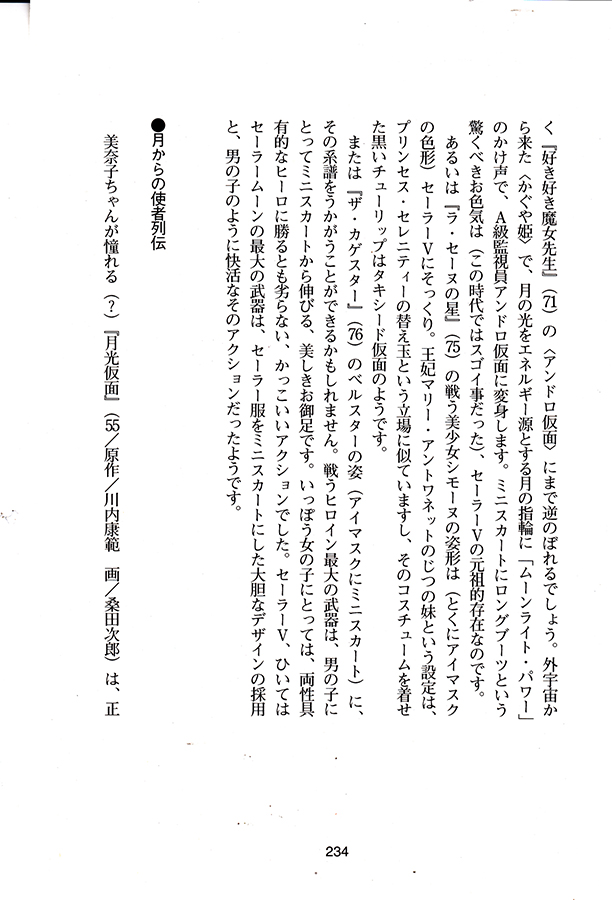 く『好き好き魔女先生』（71）の〈アンドロ仮面〉にまで逆のぼれるでしょう。外宇宙か
ら来た〈かぐや姫〉で、月の光をエネルギー源とする月の指輪に「ムーンライト・パワー」
のかけ声で、A級監視員アンドロ仮面に変身します。ミニスカートにロングブーツという
驚くべきお色気は（この時代ではスゴイ事だった）、セーラーVの元祖的存在なのです。
あるいは『ラ・セーヌの星』（75）の戦う美少女シモーヌの姿形は（とくにアイマスク
の色形）セーラーVにそっくり。王妃マリー・アントワネットのじつの妹という設定は、
プリンセス・セレニティーの替え玉という立場に似ていますし、そのコスチュームを着せ
た黒いチューリップはタキシード仮面のようです。
または『ザ・カゲスター』（76）のベルスターの姿（アイマスクにミニスカート）に、
その系譜をうかがうことができるかもしれません。戦うヒロイン最大の武器は、男の子に
とってミニスカートから伸びる、美しきお御足です。いっぽう女の子にとっては、両性具
有的なヒーロに勝るとも劣らない、かっこいいアクションでした。セーラーV、ひいては
セーラームーンの最大の武器は、セーラー服をミニスカートにした大胆なデザインの採用
と、男の子のように快活なそのアクションだったようです。
●月からの使者列伝
美奈子ちゃんが憧れる（？）『月光仮面』（55／原作／川内康範　画／桑田次郎）は、正
234